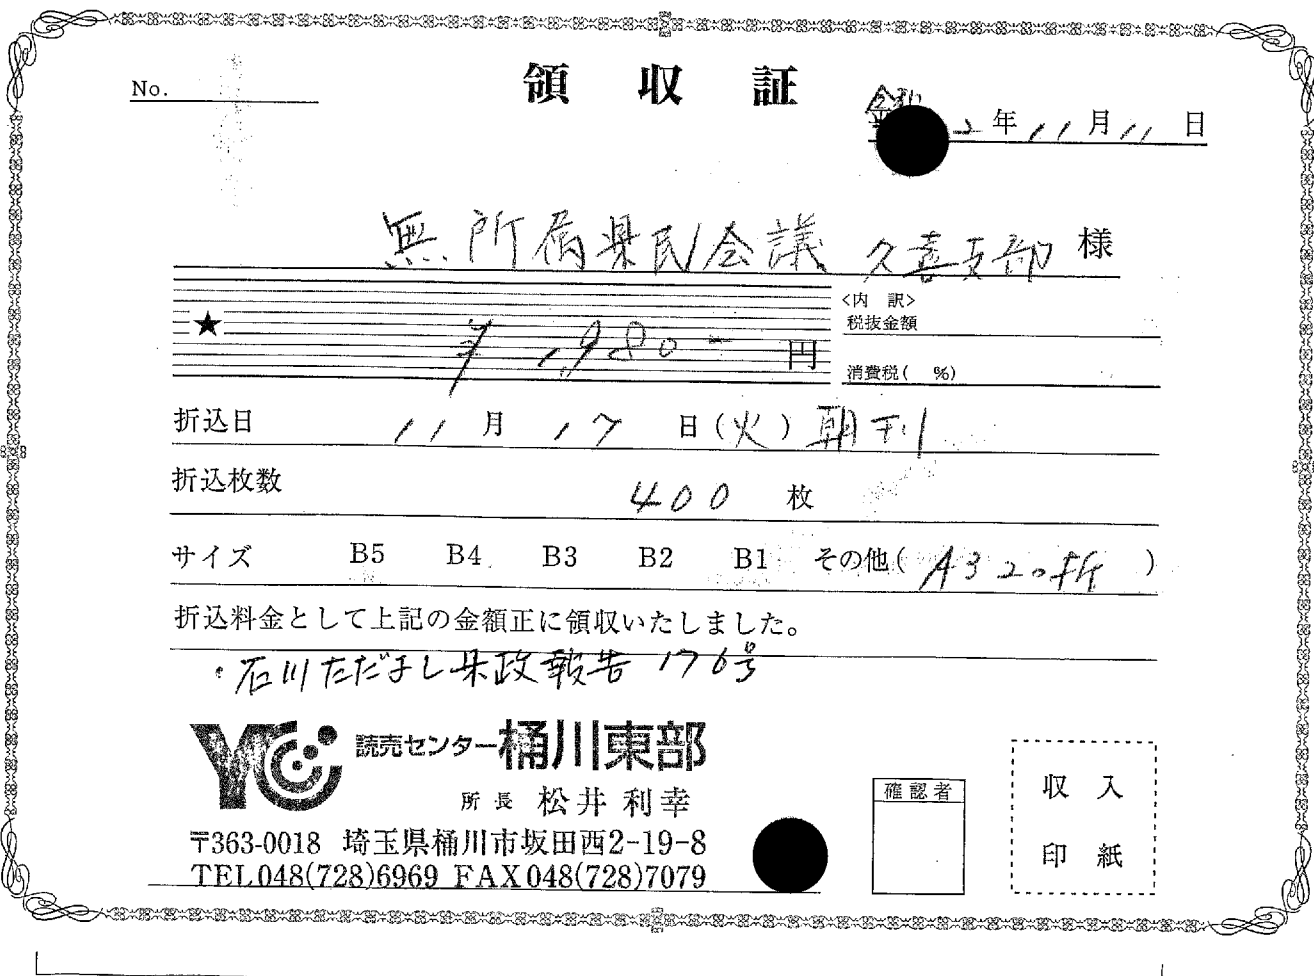 領収証
No.
令和 2年11月11日
無所属県民会議 久喜支部 様
★ ¥1,980- 円
<内 訳>
税抜金額
消費税( %)
折込日 11月17日(火)朝刊
折込枚数 400 枚
サイズ B5 B4 B3 B2 B1 その他(A3 2つ折)
折込料金として上記の金額正に領収いたしました。
・石川ただよし県政報告 176号
YC 読売センター桶川東部
所長 松井利幸
〒363-0018 埼玉県桶川市坂田西2-19-8
TEL048(728)6969 FAX048(728)7079
確認者
収入
印紙